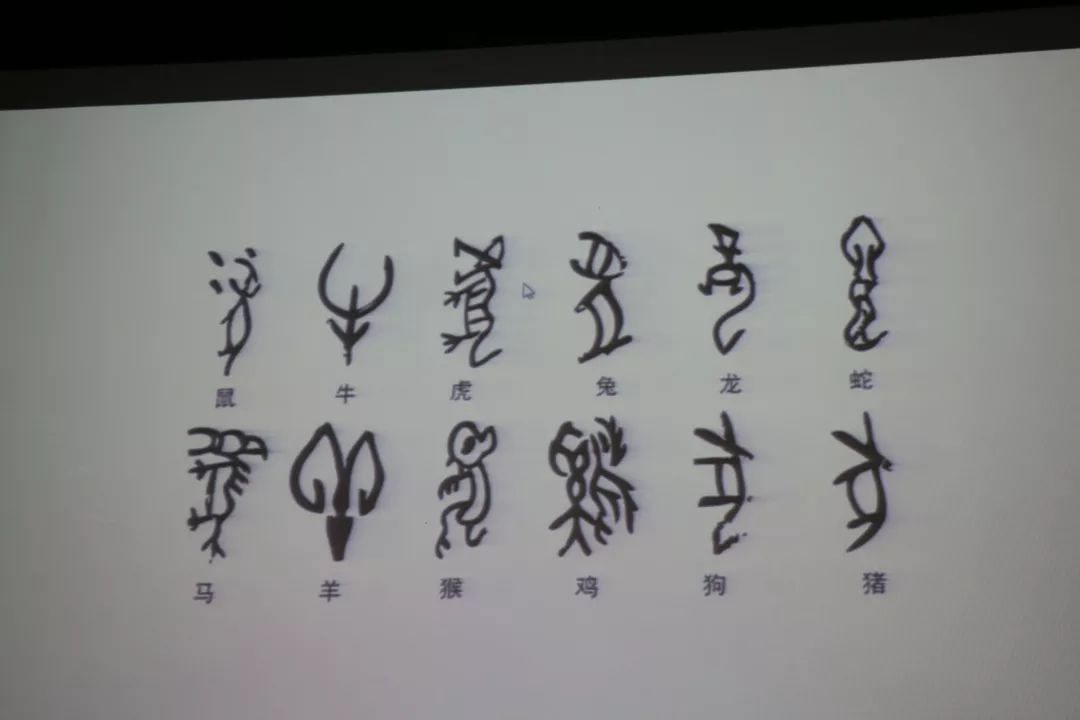 鼠 牛 虎 兔 龙 蛇
马 羊 猴 鸡 狗 猪